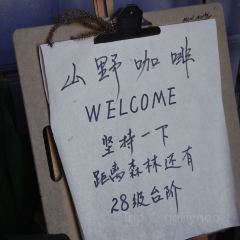 山野咖啡
WELCOME
坚持一下
距离森林还有
28级台阶